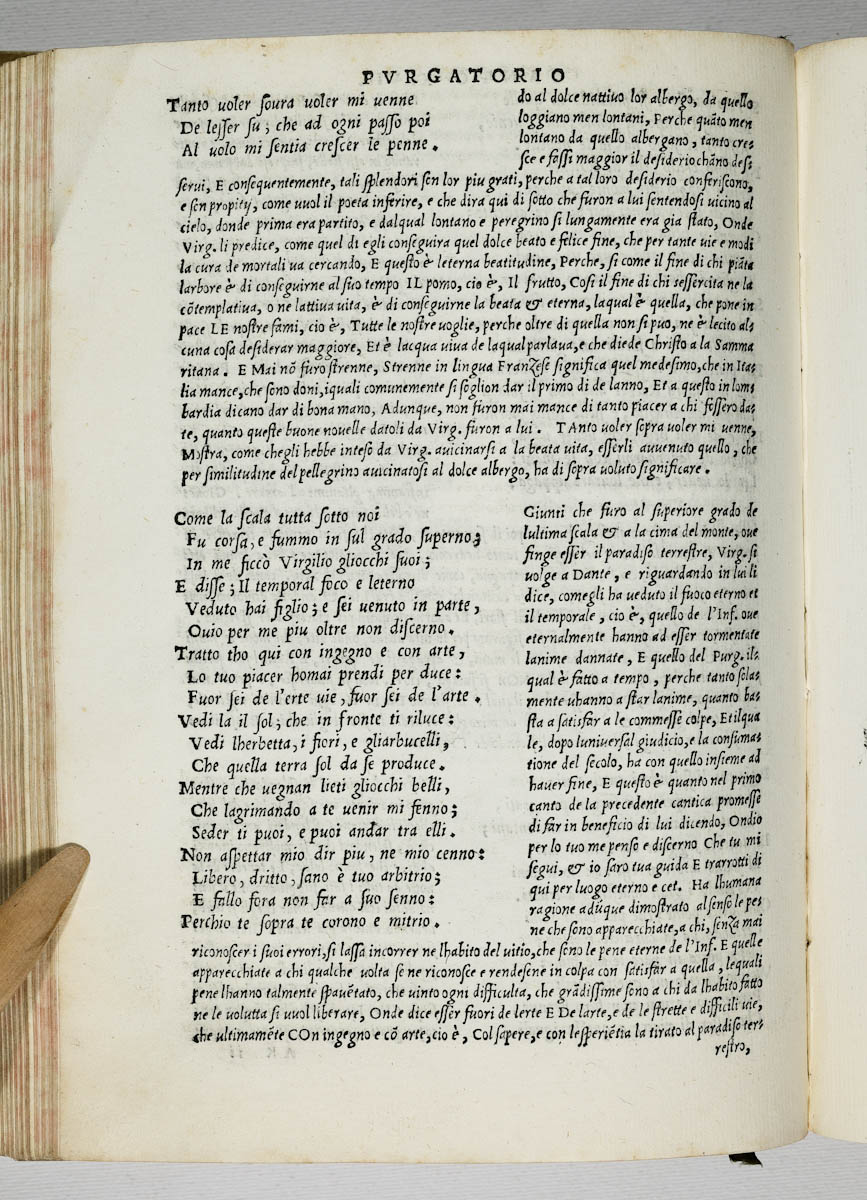 PVRGATORIO
Tanto uoler soura uoler mi uenne
De lesser su; che ad ogni passo poi
Al uolo mi sentia crescer le penne.
do al dolce nattiuo lor albergo, da quello
loggiano men lontani, Perche quãto men
lontano da quello albergano, tanto cre-
sce e fassi maggior il desiderio chãno des-
serui, E consequentemente, tali splendori sen lor piu grati, perche a tal loro desiderio conferiscono,
e sen propity, come uuol il poeta inferire, e che dira qui di sotto che furon a lui sentendosi uicino al
cielo, donde prima era partito, e dalqual lontano e peregrino si lungamente era gia stato, Onde
Virg. li predice, come quel di egli conseguira quel dolce beato e felice fine, che per tante uie e modi
la cura de mortali ua cercando, E questo è leterna beatitudine, Perche, si come il fine di chi piãta
larbore è di conseguirne al suo tempo IL pomo, cio è, Il frutto, Cosi il fine di chi sessercita ne la
cõtemplatiua, o ne lattiua uita, è di conseguirne la beata & eterna, laqual è quella, che pone in
pace LE nostre fami, cio è, Tutte le nostre uoglie, perche oltre di quella non si puo, ne è lecito al-
cuna cosa desiderar maggiore, Et è lacqua uiua de laqual parlaua, e che diede Christo a la Samma
ritana. E Mai nõ furo strenne, Strenne in lingua Franzese significa quel medesimo, che in Ita-
lia mance, che sono doni, iquali comunemente si soglion dar il primo di de lanno, Et a questo in lom
bardia dicano dar di bona mano, Adunque, non furon mai mance di tanto piacer a chi fossero da-
te, quanto queste buone nouelle datoli da Virg. furon a lui. TAnto uoler sopra uoler mi uenne,
Mostra, come chegli hebbe inteso da Virg. auicinarsi a la beata uita, esserli auuenuto quello, che
per similitudine del pellegrino auicinatosi al dolce albergo, ha di sopra uoluto significare.
Come la scala tutta sotto noi
Fu corsa, e fummo in sul grado superno;
In me ficcò Virgilio gliocchi suoi;
E disse; Il temporal foco e leterno
Veduto hai figlio; e sei uenuto in parte,
Ouio per me piu oltre non discerno.
Tratto tho qui con ingegno e con arte,
Lo tuo piacer homai prendi per duce:
Fuor sei de l'erte uie, fuor sei de l'arte.
Vedi la il sol; che in fronte ti riluce:
Vedi lherbetta, i fiori, e gliarbucelli,
Che quella terra sol da se produce.
Mentre che uegnan lieti gliocchi belli,
Che lagrimando a te uenir mi fenno;
Seder ti puoi, e puoi andar tra elli.
Non aspettar mio dir piu, ne mio cenno:
Libero, dritto, sano è tuo arbitrio;
E fallo fora non far a suo senno:
Perchio te sopra te corono e mitrio.
Giunti che furo al superiore grado de
lultima scala & a la cima del monte, oue
finge esser il paradiso terrestre, Virg. si
uolge a Dante, e riguardando in lui li
dice, comegli ha ueduto il fuoco eterno et
il temporale, cio è, quello de l'Inf. oue
eternalmente hanno ad esser tormentate
lanime dannate, E quello del Purg. il-
qual è fatto a tempo, perche tanto sola-
mente uhanno a star lanime, quanto ba-
sta a satisfar a le commesse colpe, Et ilqua
le, dopo luniuersal giudicio, e la consuma-
tione del secolo, ha con quello insieme ad
hauer fine, E questo è quanto nel primo
canto de la precedente cantica promesse
di far in beneficio di lui dicendo, Ondio
per lo tuo me penso e discerno Che tu mi
segui, & io saro tua guida E trarrotti di
qui per luogo eterno e cet. Ha lhumana
ragione adũque dimostrato al senso le pe-
ne che sono apparecchiate, a chi, senza mai
riconoscer i suoi errori, si lassa incorrer ne lhabito del uitio, che sono le pene eterne de l'Inf. E quelle
apparecchiate a chi qualche uolta se ne riconosce e rendesene in colpa con satisfar a quella, lequali
pene lhanno talmente spauẽtato, che uinto ogni difficulta, che grãdissime sono a chi da lhabito fatto
ne le uolutta si uuol liberare, Onde dice esser fuori de lerte E De larte, e de le strette e difficili uie,
che ultimamẽte COn ingegno e cõ arte, cio è, Col sapere, e con lesperiẽtia la tirato al paradiso ter-
restro,